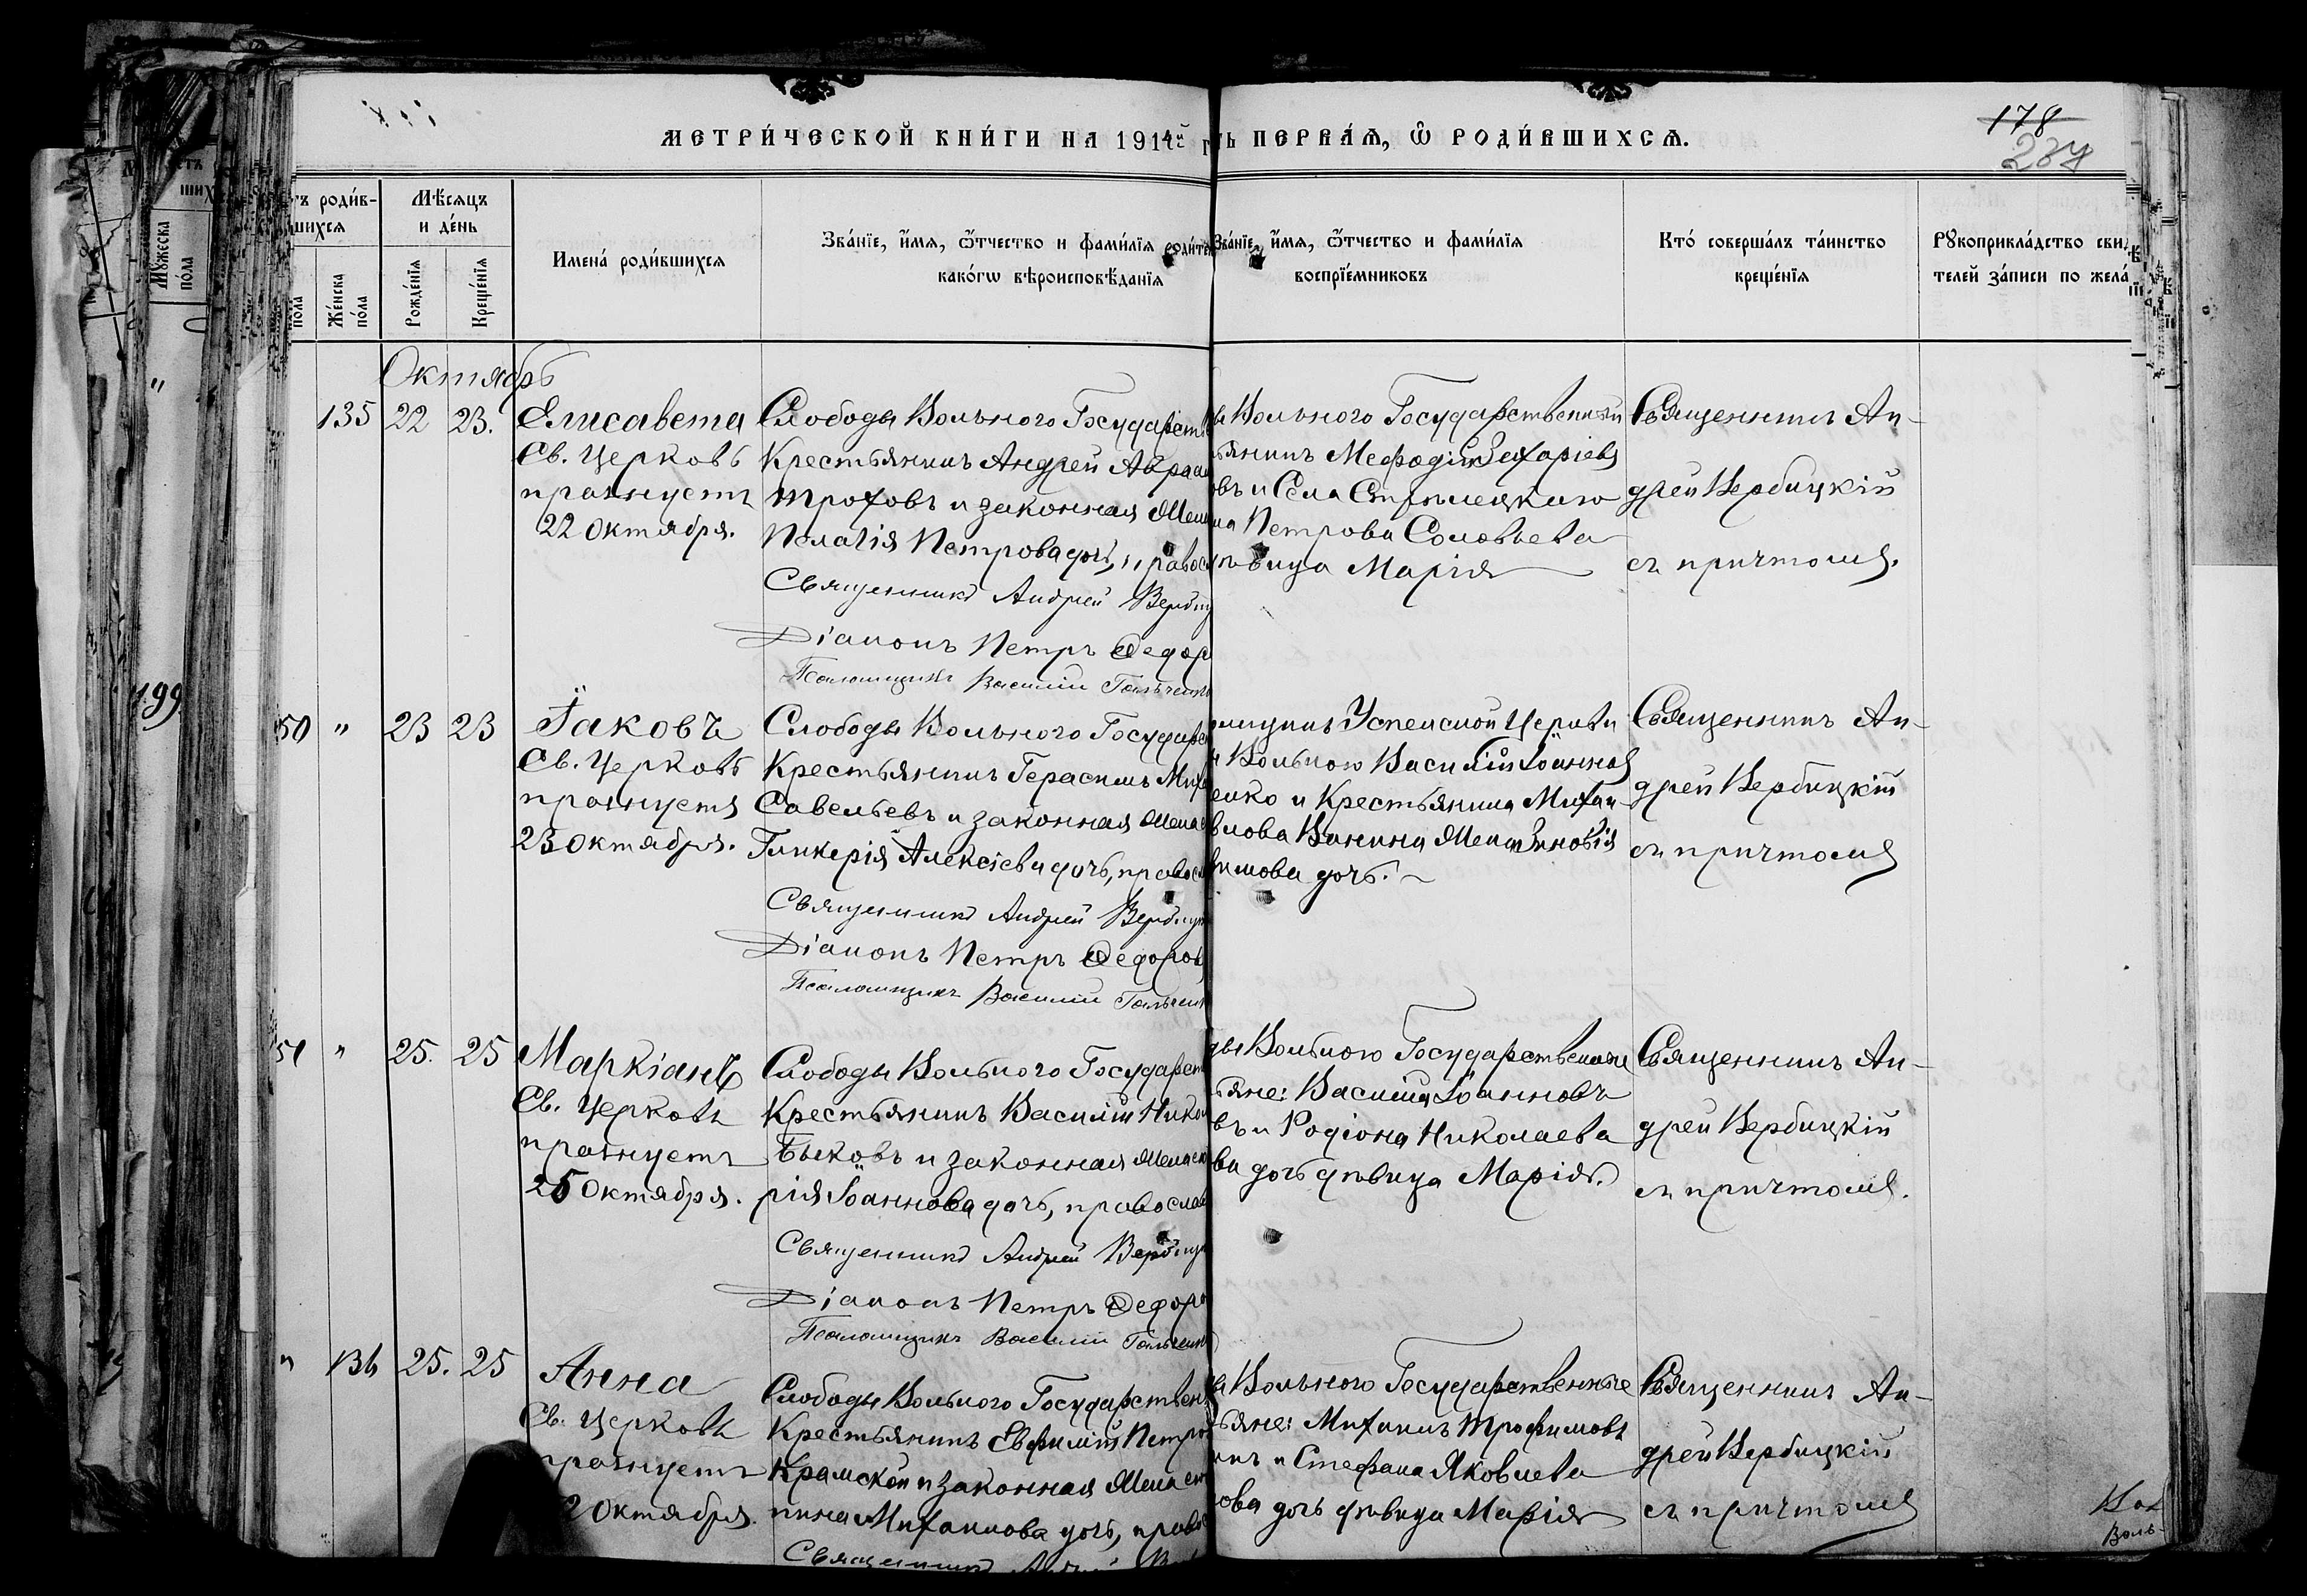 МЕТРИ́ЧЕСКОЙ КНИ́ГИ НА 1914й Г
Ь ПЕРВА́Я, Ѿ РОДИ́ВШИХСЯ.
178
тъ роди́в-
шихся
Мѣ́сяцъ
и де́нь
Имена́ роди́вшихся
Зва́нїе, и́мя, ѻ҆́тчество и фами́лїя роди́те
како́гѡ вѣроисповѣ́данїя
Зва́нїе, и́мя, ѻ҆́тчество и фами́лїя
воспрїе́мниковъ
Кто́ соверша́лъ та́инство
креще́нїя
Рꙋкоприкла́дство сви
телей за́писи по жела́
Мꙋ́жеска
по́ла
пола
Же́нска
по́ла
Рожде́нїя
Креще́нїя
Октябрь
135 22 23. Елисавета
Св. Церковь
празнуетъ
22 Октября.
Слободы Вольного Государств
Крестьянинъ Андрей Авраам
Трофовъ и законная Жена
Пелагія Петрова дочь, правос
Священникъ Андрей Вербиц
Діаконъ Петръ Ѳедор
Псаломщикъ Василій
ы Вольного Государственный
ьянинъ Мефодій Захаріевъ
овъ и Села Стрѣлецкаго
на Петрова Соловьева
ѣвица Марія
Священникъ Ан-
дрей Вербицкій
съ причтомъ.
199
50 " 23 23 Іаковъ
Св. Церковь
празнуетъ
23 Октября.
Слободы Вольного Государс
Крестьянинъ Герасимъ Мих
Савельевъ и законная Жена
Гликерія Алексіева дочь, правосл
Священникъ Андрей Вербицк
Діаконъ Петръ Ѳедоров
Псаломщикъ Василій
омщикъ Успенской Церкви
ы Вольного Василій Іоанновъ
енко и Крестьянина Михаи
влова Ванина Жена Зиновія
фимова дочь.
Священникъ Ан-
дрей Вербицкій
съ причтомъ
51 " 25. 25 Маркіанъ
Св. Церковь
празнуетъ
25 Октября.
Слободы Вольного Государст
Крестьянинъ Василій Никол
Быковъ и законная Жена его
рія Іоаннова дочь, православ
Священникъ Андрей Вербиц
Діаконъ Петръ Ѳедоро
Псаломщикъ Василій
ды Вольного Государственные
ьяне: Василій Іоанновъ
въ и Родіона Николаева
ва дочь дѣвица Марія.
Священникъ Ан-
дрей Вербицкій
съ причтомъ.
" 136 25. 25 Анна
Св. Церковь
празнуетъ
2 Октября.
Слободы Вольного Государствен
Крестьянинъ Евфимій Петро
Крамской и законная Жена его
пина Михаилова дочь, правос
Священникъ Андрей Вер
ы Вольного Государственные
ьяне: Михаилъ Трофимовъ
инъ и Стефана Яковлева
ова дочь дѣвица Марія
Священникъ Ан-
дрей Вербицкій
съ причтомъ
Воль-